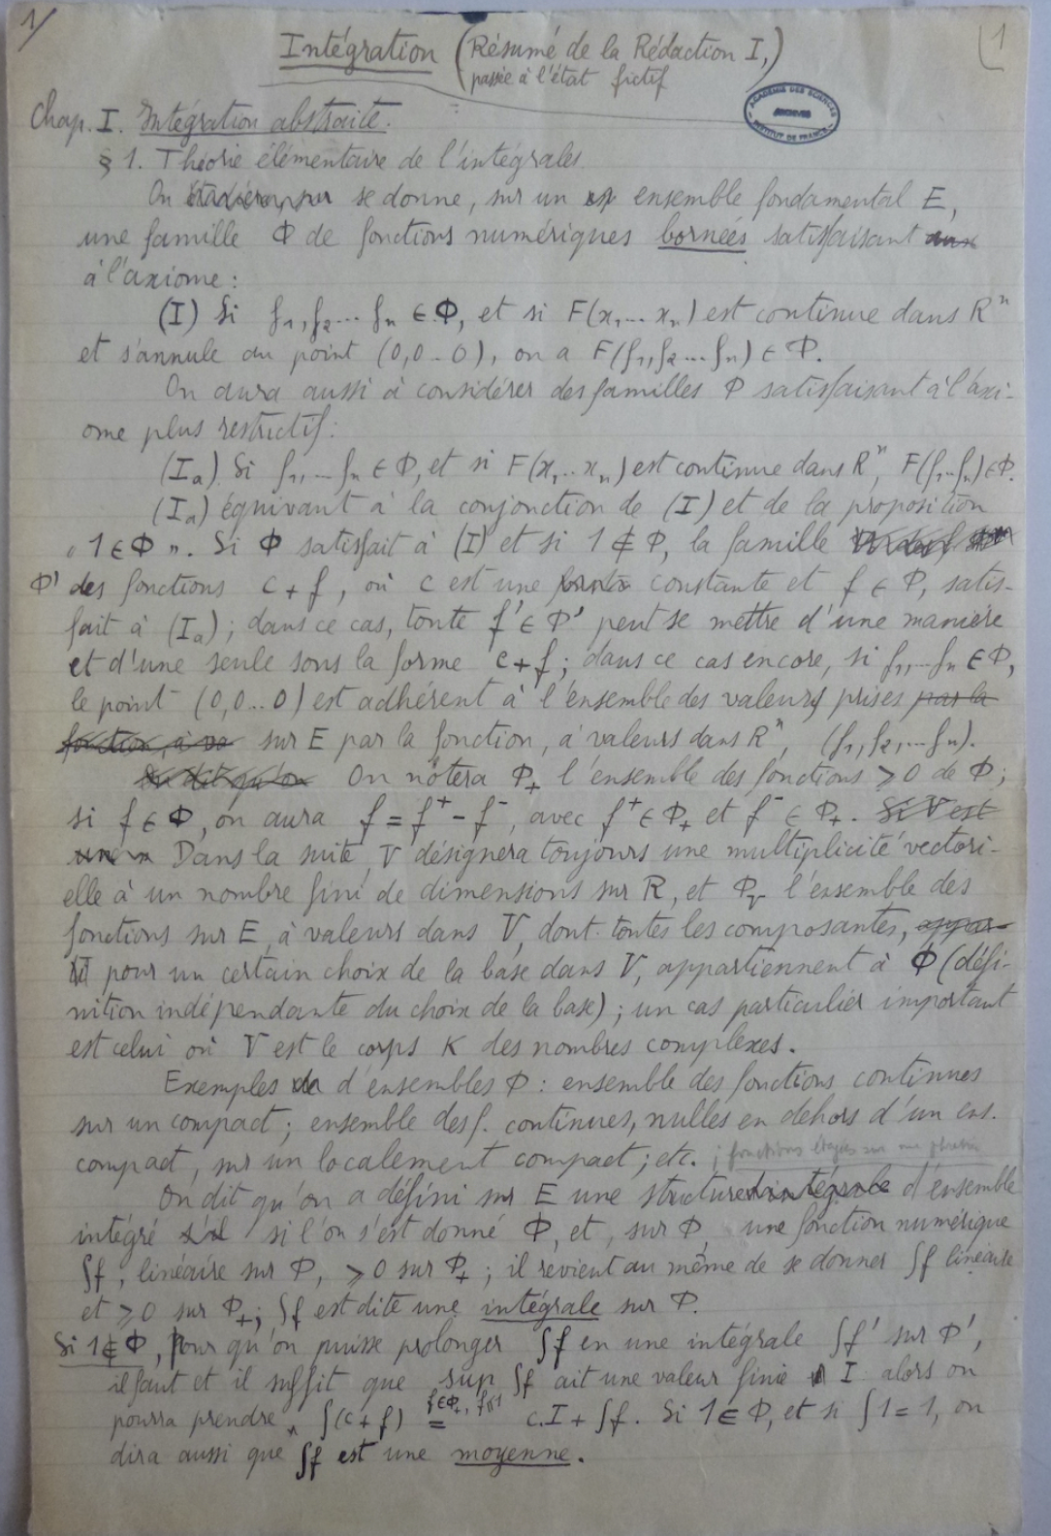 1/
(1
Intégration (Résumé de la Rédaction I,)
passée à l'état fictif
ACADEMIE DES SCIENCES
ARCHIVES
INSTITUT DE FRANCE
Chap. I. Intégration abstraite.
§ 1. Théorie élémentaire de l'intégrales
On se donne, sur un ensemble fondamental E,
une famille Φ de fonctions numériques bornées satisfaisant aux
à l'axiome :
(I) Si f₁, f₂ ... fₙ ∈ Φ, et si F(x₁ ... xₙ) est continue dans Rⁿ
et s'annule au point (0,0..0), on a F(f₁, f₂ ... fₙ) ∈ Φ.
On aura aussi à considérer des familles Φ satisfaisant à l'axi-
ome plus restrictif :
(Iₐ) Si f₁, ... fₙ ∈ Φ, et si F(x₁ .. xₙ) est continue dans Rⁿ, F(f₁ .. fₙ) ∈ Φ.
(Iₐ) équivaut à la conjonction de (I) et de la proposition
« 1 ∈ Φ ». Si Φ satisfait à (I) et si 1 ∉ Φ, la famille
Φ' des fonctions c + f, où c est une constante et f ∈ Φ, satis-
fait à (Iₐ) ; dans ce cas, toute f' ∈ Φ' peut se mettre d'une manière
et d'une seule sous la forme c + f ; dans ce cas encore, si f₁, ... fₙ ∈ Φ,
le point (0,0..0) est adhérent à l'ensemble des valeurs prises par la
fonction, à va sur E par la fonction, à valeurs dans Rⁿ, (f₁, f₂, ... fₙ).
On dit qu'on On notera Φ₊ l'ensemble des fonctions ⩾ 0 de Φ ;
si f ∈ Φ, on aura f = f⁺ - f⁻, avec f⁺ ∈ Φ₊ et f⁻ ∈ Φ₊. Si V est
Dans la suite, V désignera toujours une multiplicité vectori-
elle à un nombre fini de dimensions sur R, et Φᵥ l'ensemble des
fonctions sur E, à valeurs dans V, dont toutes les composantes, appar-
pour un certain choix de la base dans V, appartiennent à Φ (défi-
nition indépendante du choix de la base) ; un cas particulier important
est celui où V est le corps K des nombres complexes.
Exemples d'ensembles Φ : ensemble des fonctions continues
sur un compact ; ensemble des f. continues, nulles en dehors d'un ens.
compact, sur un localement compact ; etc. ; fonctions étagées sur une
On dit qu'on a défini sur E une structure d'intégrale d'ensemble
intégré s'il si l'on s'est donné Φ, et, sur Φ, une fonction numérique
∫f, linéaire sur Φ, ⩾ 0 sur Φ₊ ; il revient au même de se donner ∫f linéaire
et ⩾ 0 sur Φ₊ ; ∫f est dite une intégrale sur Φ.
Si 1 ∉ Φ, pour qu'on puisse prolonger ∫f en une intégrale ∫f' sur Φ',
il faut et il suffit que sup ∫f ait une valeur finie I alors on
f∈Φ₊, f⩽1
pourra prendre ∫(c + f) = c.I + ∫f. Si 1 ∈ Φ, et si ∫1 = 1, on
dira aussi que ∫f est une moyenne.